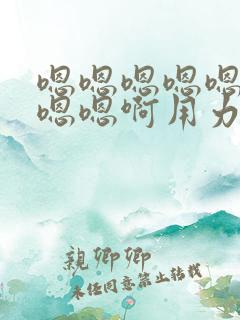 嗯嗯嗯嗯嗯
嗯嗯啊用力
親卿卿
未经同意禁止转载